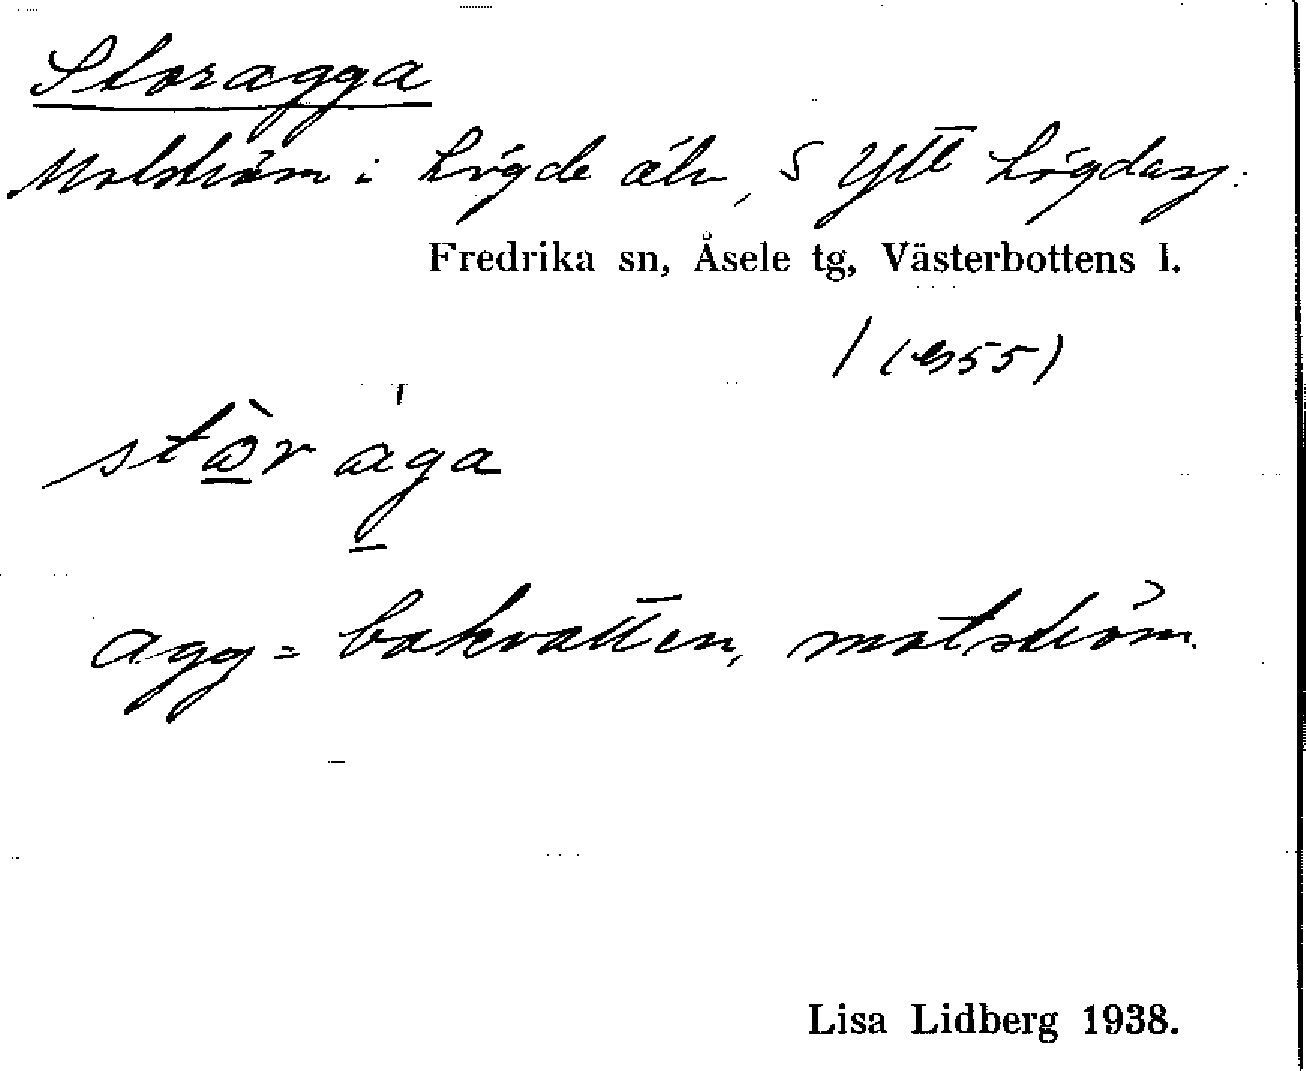 Storagga
Motström i Lögde älv, S Ytt Lögdasj.
Fredrika sn, Åsele tg, Västerbottens l.
/ (1955)
stòr ága
agg = bakvatten, motström.
Lisa Lidberg 1938.